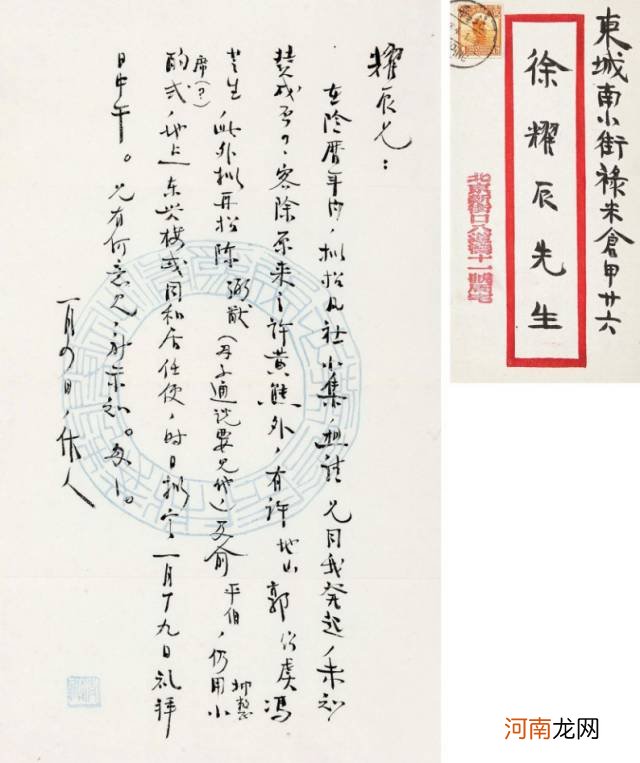 耀辰兄：
在阴曆年内，拟招凡社小集，想请兄同我発起，未知
赞成否？客除原来之许黄熊外，有许地山郭绍虞冯
芝生，此外拟再招陈（通说要兄代）及俞平伯，仍用小
席（？）
抑整
酌式，地上东兴楼或同和居任便，时日拟定一月十九日礼拜
日中午。兄有何意见，示知。匆匆。
一月四日，作人
東城南小街禄米倉甲廿六
徐耀辰先生
北京新街口八道灣十一號周宅
河南龙网